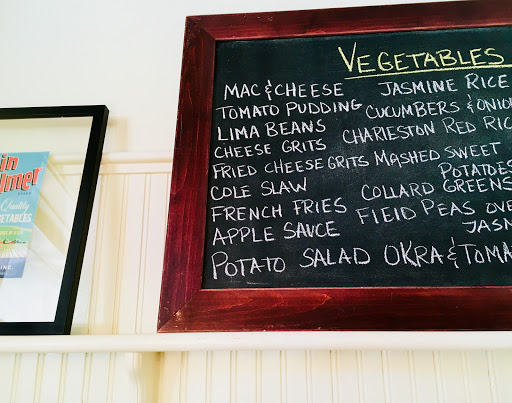 VEGETABLES
MAC & CHEESE
TOMATO PUDDING
LIMA BEANS
CHEESE GRITS
FRIED CHEESE GRITS
COLE SLAW
FRENCH FRIES
APPLE SAUCE
POTATO SALAD
JASMINE RICE
CUCUMBERS & ONIO
CHARLESTON RED RIC
MASHED SWEET
POTATOES
COLLARD GREENS
FIELD PEAS OVE
JASM
OKRA & TOMA
in
lmer
Quality
ETABLES
INC.